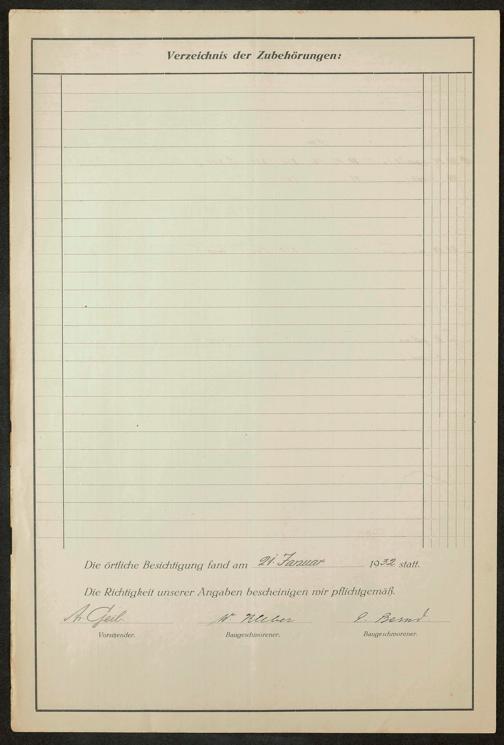 Verzeichnis der Zubehörungen:
Die örtliche Besichtigung fand am 21. Januar 1932 statt.
Die Richtigkeit unserer Angaben bescheinigen wir pflichtgemäß.
A. Geil W. Kleber C. Bernd
Vorsitzender. Baugeschworener. Baugeschworener.